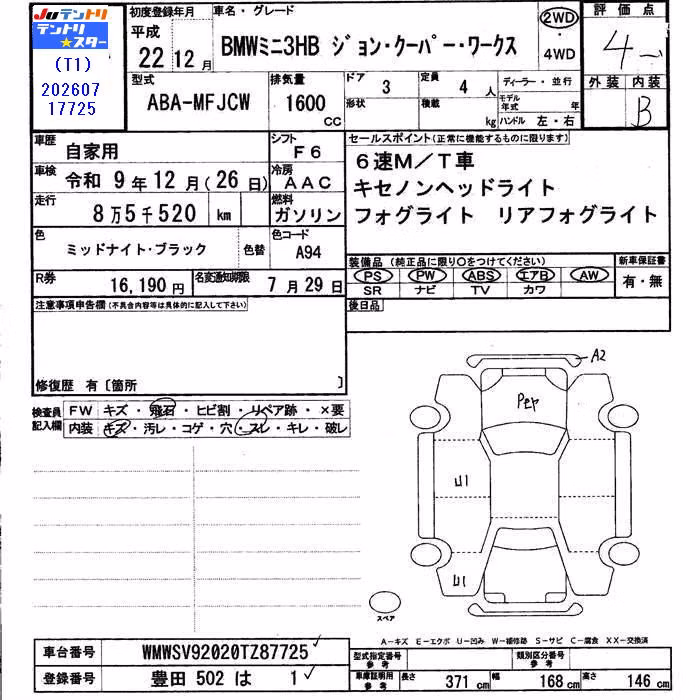 Juテントリ
テントリ
★スター
(T1)
202607
17725
初度登録年月
平成
22年12月
車名・グレード
BMWミニ3HB ジョン・クーパー・ワークス
2WD
・
4WD
評価点
4
外装 内装
B
型式
ABA-MFJCW
排気量
1600
CC
ドア 3
形状
定員 4 人
積載 kg
ディーラー・並行
モデル年式 年
ハンドル 左・右
車歴 自家用
シフト F6
車検 令和 9年12月(26日)
冷房 AAC
走行 8万5千520 km
燃料 ガソリン
色 ミッドナイト・ブラック 色替
色コード A94
R券 16,190円
名変通知期限 7月29日
セールスポイント(正常に機能するものに限ります)
6速M/T車
キセノンヘッドライト
フォグライト リアフォグライト
装備品(純正品に限り〇をつけてください)
PS PW ABS エアB AW
SR ナビ TV カワ
新車保証書
有・無
後日品
注意事項申告欄(不具合内容等は具体的に記入して下さい)
修復歴 有〔箇所 〕
検査員記入欄
FW キズ・飛石・ヒビ割・リペア跡・×要
内装 キズ・汚レ・コゲ・穴・スレ・キレ・破レ
A2
U1
U1
スペア
A-キズ E-エクボ U-凹み W-補修跡 S-サビ C-腐食 XX-交換済
車台番号 WMWSV92020TZ87725
登録番号 豊田 502 は 1
型式指定番号
参考
類別区分番号
参考
車庫証明用
参考
長さ 371cm 幅 168cm 高さ 146cm